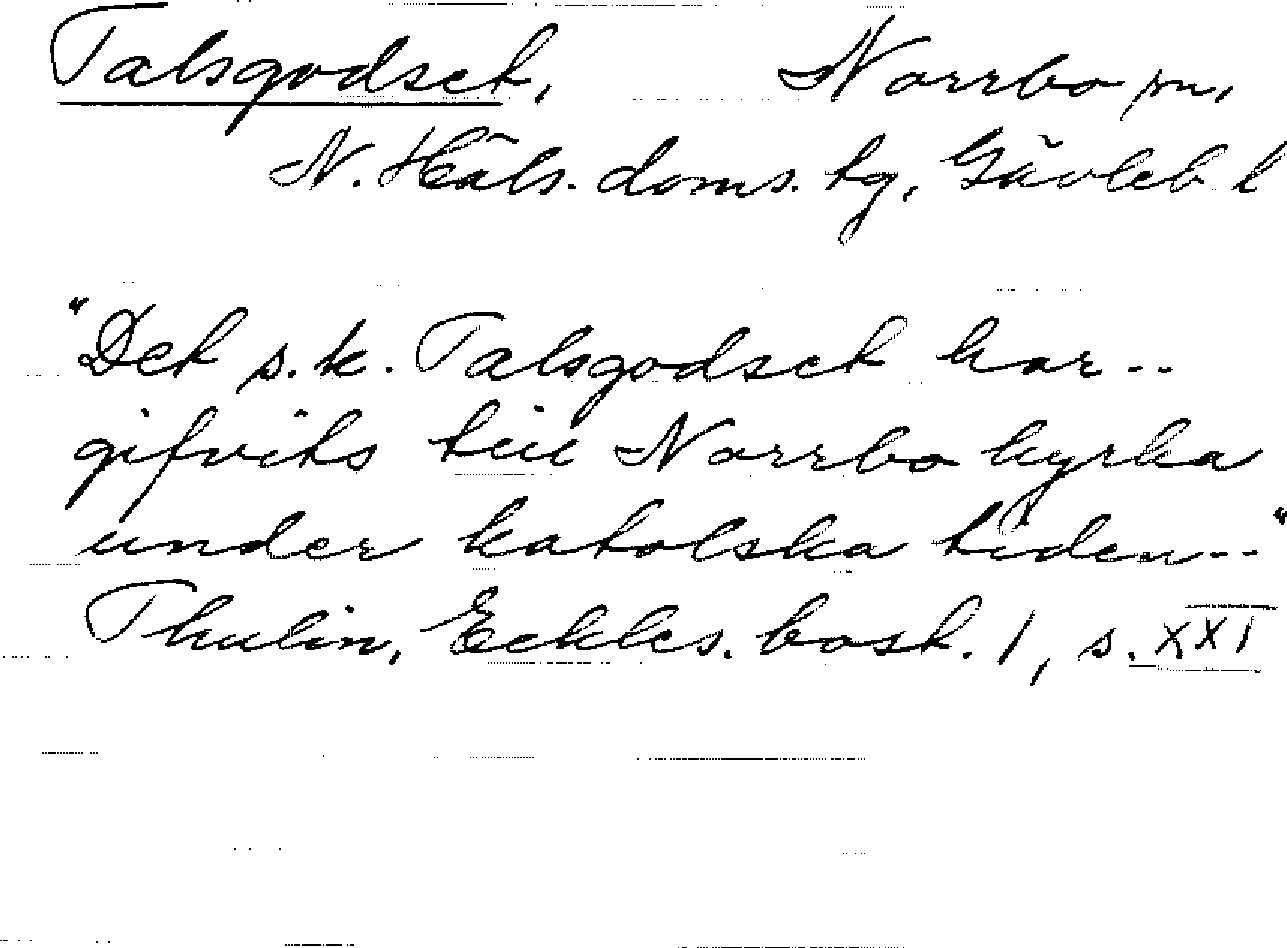 Talsgodset, Norrbo sn,
N. Häls. doms. tg, Gävleb. l
"Det s.k. Talsgodset har --
gifvits till Norrbo kyrka
under katolska tiden--"
Thulin, Eckles. bost. I, s. XXI